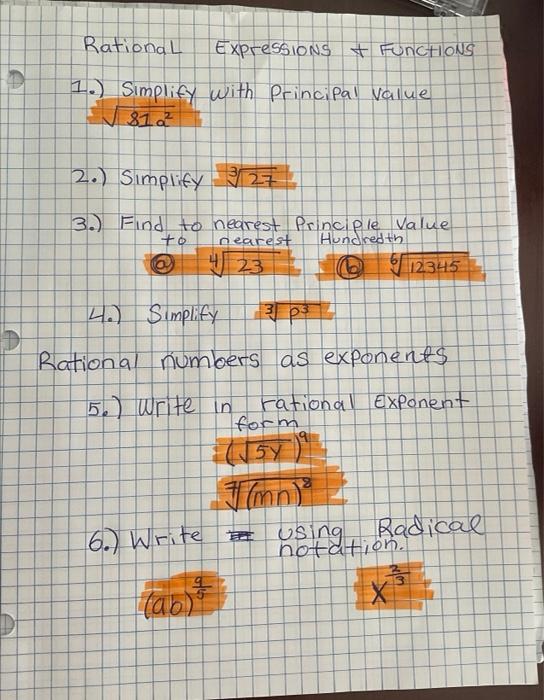 Rational Expressions + Functions
1.) Simplify with Principal value
√81a²
2.) Simplify ∛27
3.) Find to nearest Principle Value
to nearest Hundredth
ⓐ ∜23 ⓑ ⁶√12345
4.) Simplify ∛p³
Rational numbers as exponents
5.) Write in rational Exponent
form
(√5y)⁹
⁷√(mn)⁸
6.) Write using Radical
notation.
(ab)^(9/5) x^(2/3)